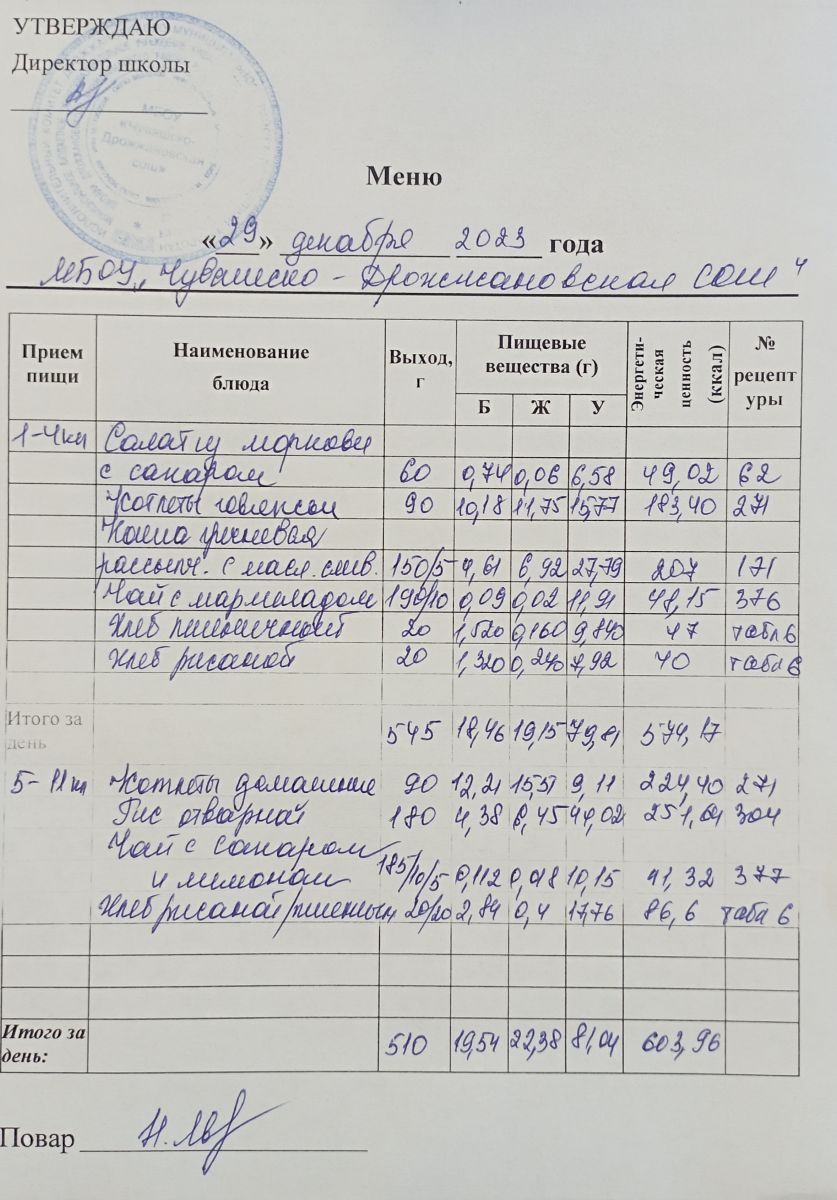 УТВЕРЖДАЮ
Директор школы
МБОУ
«Чувашско-
Дрожжановская
сош»
Меню
«29» декабря 2023 года
МБОУ „Чувашско - Дрожжановская СОШ"
Прием пищи Наименование блюда Выход, г Пищевые вещества (г) Энергети-ческая ценность (ккал) № рецепт уры
Б Ж У
1-4кл Салат из моркови
с сахаром 60 0,74 0,06 6,58 49,02 62
Котлеты говяжьи 90 10,18 11,75 15,77 183,40 271
Каша гречневая
рассыпч. с масл. слив. 150/5 4,61 6,92 27,79 207 171
Чай с мармеладом 190/10 0,09 0,02 11,91 48,15 376
Хлеб пшеничный 20 1,520 0,160 9,840 47 табл 6
Хлеб ржаной 20 1,320 0,240 7,92 40 табл 6
Итого за день 545 18,46 19,15 79,81 574,17
5-11кл Котлеты домашние 90 12,21 15,51 9,11 224,40 271
Рис отварной 180 4,38 6,45 44,02 251,64 304
Чай с сахаром
и лимоном 185/10/5 0,112 0,018 10,15 41,32 377
Хлеб ржаной/пшеничн 20/20 2,84 0,4 17,76 86,6 табл 6
Итого за день: 510 19,54 22,38 81,04 603,96
Повар